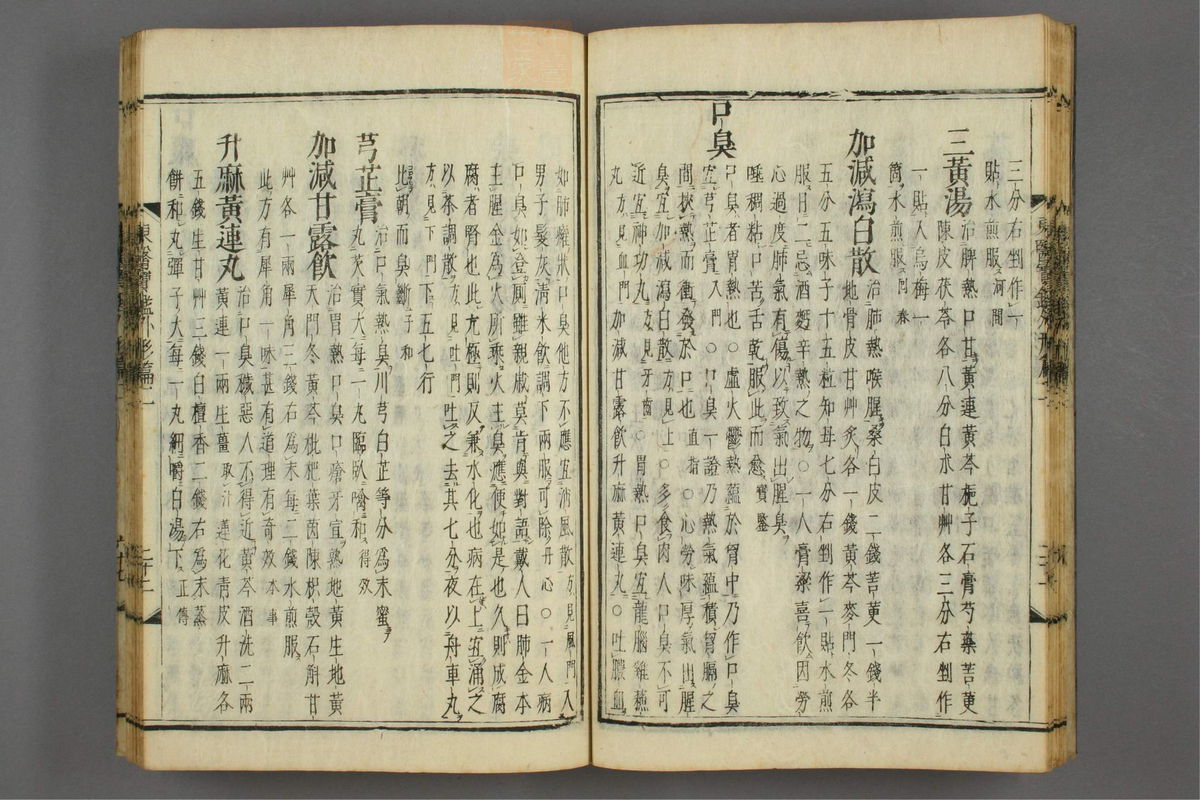 三分右剉作一
貼水煎服河間
三黃湯治脾熱口甘黃連黃芩梔子石膏芍藥苦莄
陳皮茯苓各八分白朮甘艸各三分右剉作
一貼入烏梅一
箇水煎服回春
加減瀉白散治肺熱喉腥桑白皮二錢苦莄一錢半
地骨皮甘艸炙各一錢黃芩麥門冬各
五分五味子十五粒知母七分右剉作一貼水煎
服日二忌酒麪辛熱之物○一人膏粱喜飲因勞
心過度肺氣有傷以致氣出腥臭
唾稠粘口苦舌乾服此而愈寶鑑
口臭口臭者胃熱也○虛火鬱熱蘊於胷中乃作口臭
宜芎芷膏入門○口臭一證乃熱氣蘊積胷膈之
間挾熱而衝發於口也直指○心勞味厚氣出腥
臭宜加減瀉白散方見上○多食肉人口臭不可
近宜神功丸方見牙齒○胃熱口臭宜龍腦雞蘓
丸方見血門加減甘露飲升麻黃連丸○吐膿血
如肺癰狀口臭他方不應宜消風散方見風門入
男子髮灰淸米飲調下兩服可除丹心○一人病
口臭如登厠雖親戚莫肯與對語戴人曰肺金本
主腥金爲火所乘火主臭應便如是也久則成腐
腐者腎也此亢極則反兼水化也病在上宜涌之
以茶調散方見吐門吐之去其七分夜以舟車丸
方見下門下五七行
比朝而臭斷子和
芎芷膏治口氣熱臭川芎白芷等分爲末蜜
丸芡實大每一丸臨臥噙和得效
加減甘露飲治胃熱口臭口瘡牙宣熟地黃生地黃
天門冬黃芩枇杷葉茵陳枳殼石斛甘
艸各一兩犀角三錢右爲末每二錢水煎服
此方有犀角一味甚有道理有奇效本事
升麻黃連丸治口臭穢惡人不得近黃芩酒洗二兩
黃連一兩生薑取汁蓮花靑皮升麻各
五錢生甘艸三錢白檀香二錢右爲末蒸
餠和丸彈子大每一丸細嚼白湯下正傳